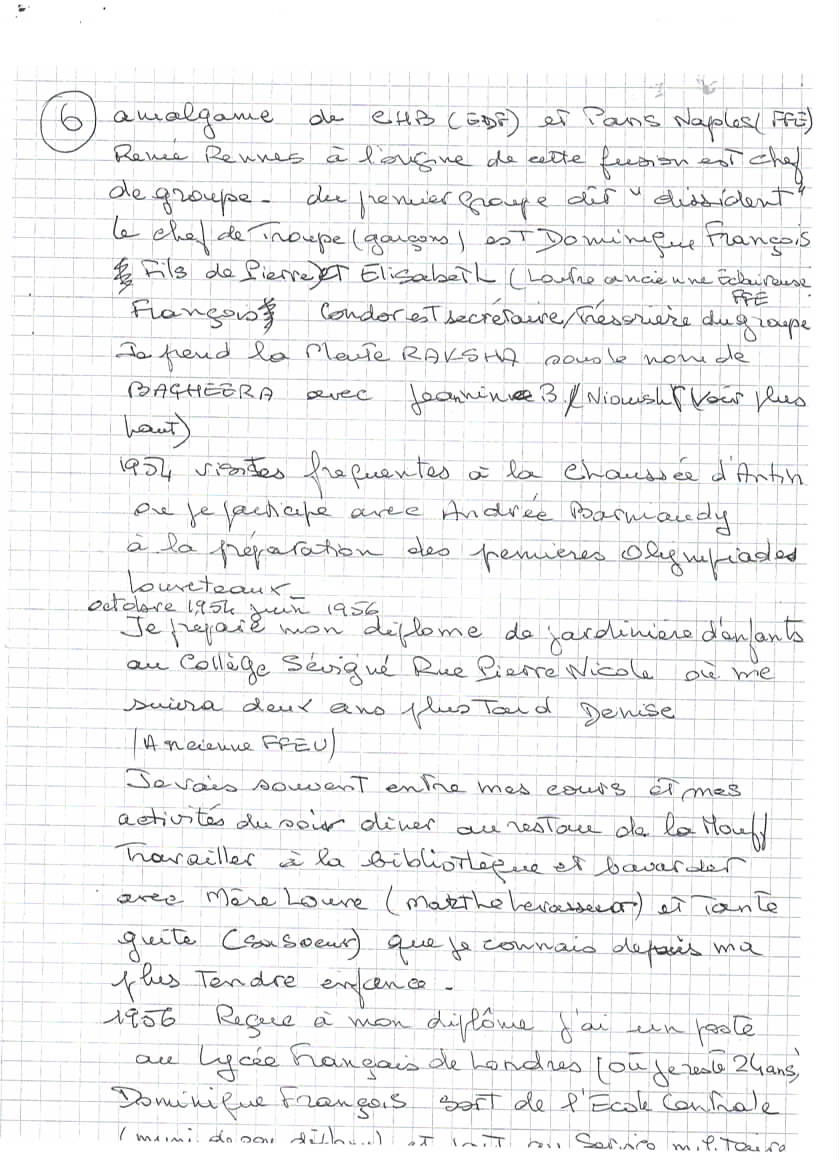 6 amalgame de CHB (EDF) et Paris Naples (FFE)
Renée Rennes à l'origine de cette fusion est chef
de groupe - du premier groupe dit "dissident"
le chef de Troupe (garçons) est Dominique François
Fils de Pierre et Elisabeth (Loutre ancienne Eclaireuse
FFE
François Condor est secrétaire/Trésorière du groupe
Je prend la Meute RAKSHA sous le nom de
BAGHEERA avec Jeannine B (Nioush) (voir plus
haut)
1954 visites frequentes à la Chaussée d'Antin
ou je participe avec Andrée Barniaudy
à la préparation des premières Olympiades
Louveteaux
octobre 1954 juin 1956
Je prepare mon diplome de jardinière d'enfants
au Collège Sévigné Rue Pierre Nicole où me
suivra deux ans plus Tard Denise
(Ancienne FFEU)
Je vais souvent entre mes cours et mes
activités du soir diner au restau de la Mouff
Travailler à la bibliotèque et bavarder
avec Mère Louve (Marthe Levasseur) et Tante
guite (sa soeur) que je connais depuis ma
plus Tendre enfance -
1956 Reçue à mon diplôme j'ai un poste
au Lycée Français de Londres (où je reste 24 ans)
Dominique François sort de l'Ecole Centrale
(muni de son diplome) et part au Service militaire